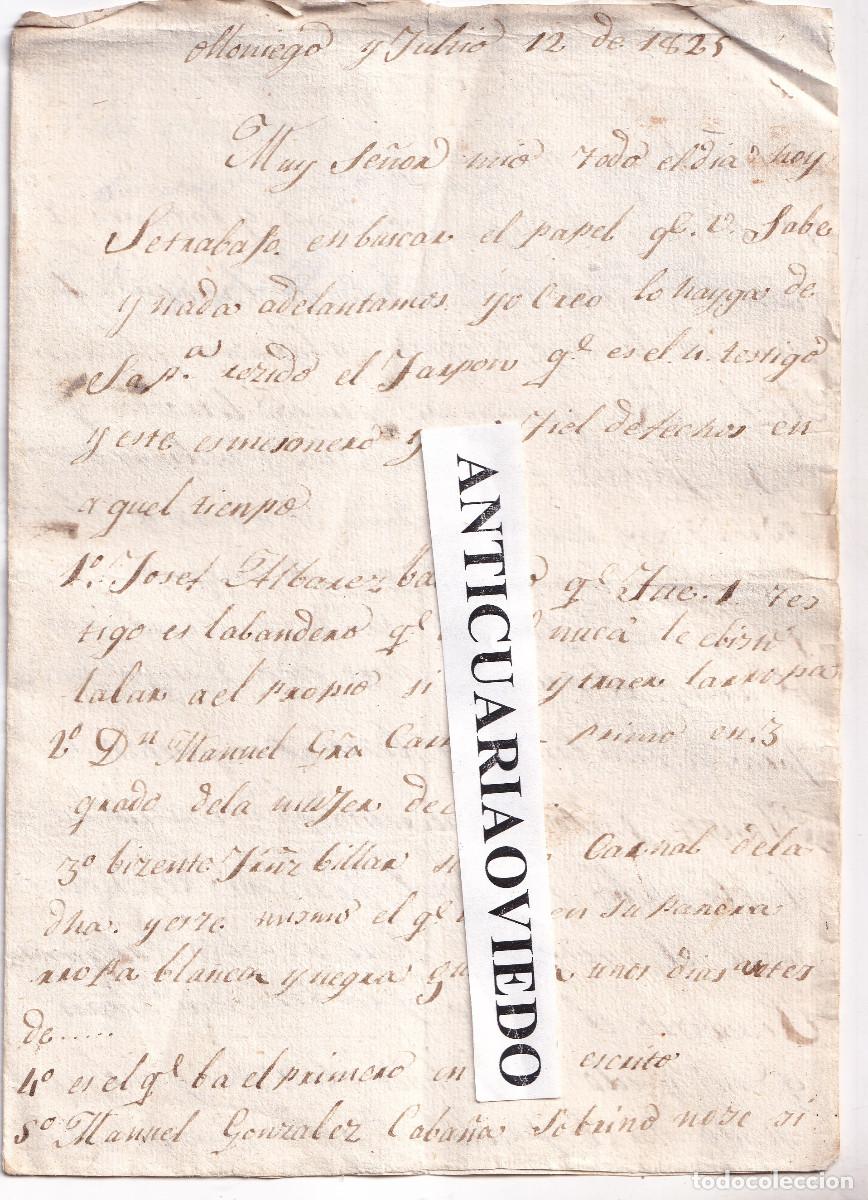 olloniego y Julio 12 de 1825
Muy Señor mio todo el dia hoy
Se trabajo en buscar el papel qe. V. Sabe
y nada adelantamos yo Creo lo hayga de
Sap.a el qe es el 4. testigo
y este es mesonero y fiel de fechos en
aquel tienpo
1º. Josef Albarez qe. fue. 1. tes
tigo es labandero qe nuca le
a el propio si y traer la rropa
2º Dn Manuel Gra primo en 3
grado dela mujer de
3º bizente frnz billar Carnal dela
dha. y este mismo el qe en su panera
rropa blanca y negra unos dias antes
de.....
4º es el qe ba el primero en escrito
5º Manuel Gonzalez Cabaña Sobrino no se si
ANTICUARIAOVIEDO
todocoleccion